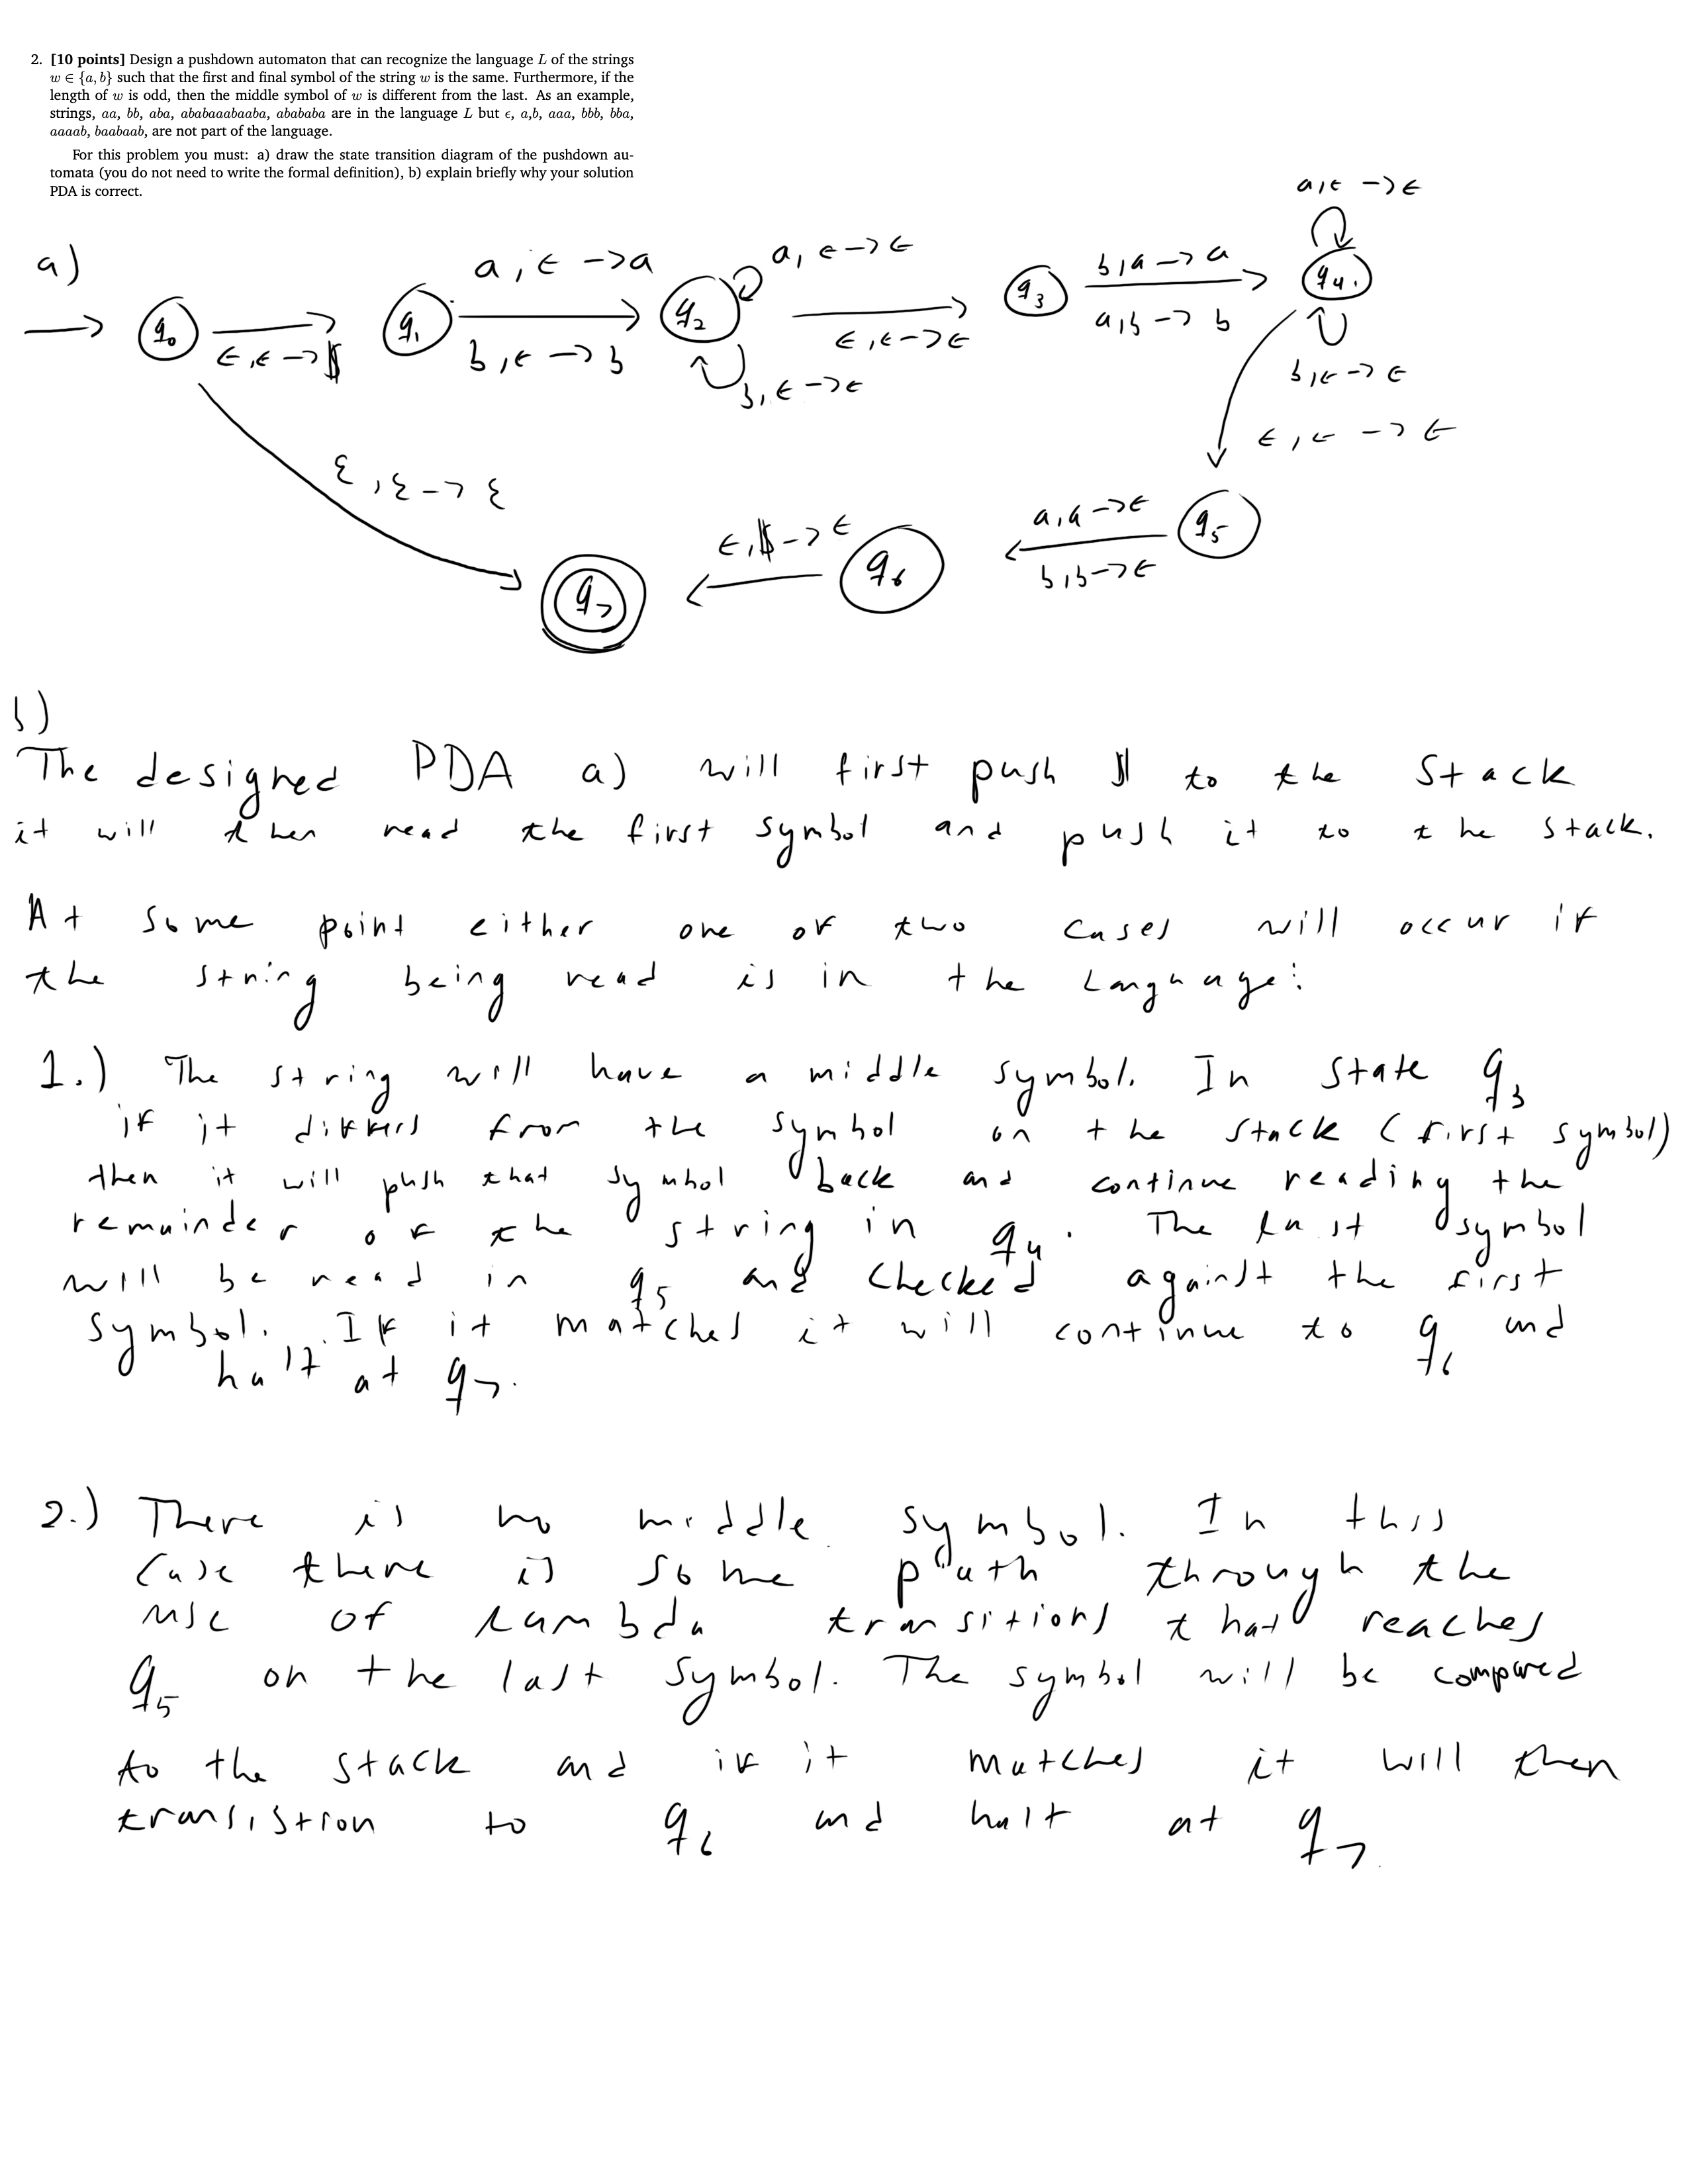 2. [10 points] Design a pushdown automaton that can recognize the language L of the strings
w ∈ {a, b} such that the first and final symbol of the string w is the same. Furthermore, if the
length of w is odd, then the middle symbol of w is different from the last. As an example,
strings, aa, bb, aba, ababaaabaaba, abababa are in the language L but ϵ, a,b, aaa, bbb, bba,
aaaab, baabaab, are not part of the language.
For this problem you must: a) draw the state transition diagram of the pushdown au-
tomata (you do not need to write the formal definition), b) explain briefly why your solution
PDA is correct.
a)
q0
ϵ, ϵ -> $
q1
a, ϵ -> a
b, ϵ -> b
q2
a, ϵ -> ϵ
b, ϵ -> ϵ
ϵ, ϵ -> ϵ
q3
b, a -> a
a, b -> b
a, ϵ -> ϵ
q4
b, ϵ -> ϵ
ϵ, ϵ -> ϵ
ε, ε -> ε
q5
a, a -> ϵ
b, b -> ϵ
q6
ϵ, $ -> ϵ
q7
b)
The designed PDA a) will first push $ to the stack
it will then read the first symbol and push it to the stack.
At some point either one of two cases will occur if
the string being read is in the language:
1.) The string will have a middle symbol. In state q3
if it differs from the symbol on the stack (first symbol)
then it will push that symbol back and continue reading the
remainder of the string in q4. The last symbol
will be read in q5 and checked against the first
symbol. If it matches it will continue to q6 and
halt at q7.
2.) There is no middle symbol. In this
case there is some path through the
use of lambda transitions that reaches
q5 on the last symbol. The symbol will be compared
to the stack and if it matches it will then
transistion to q6 and halt at q7.